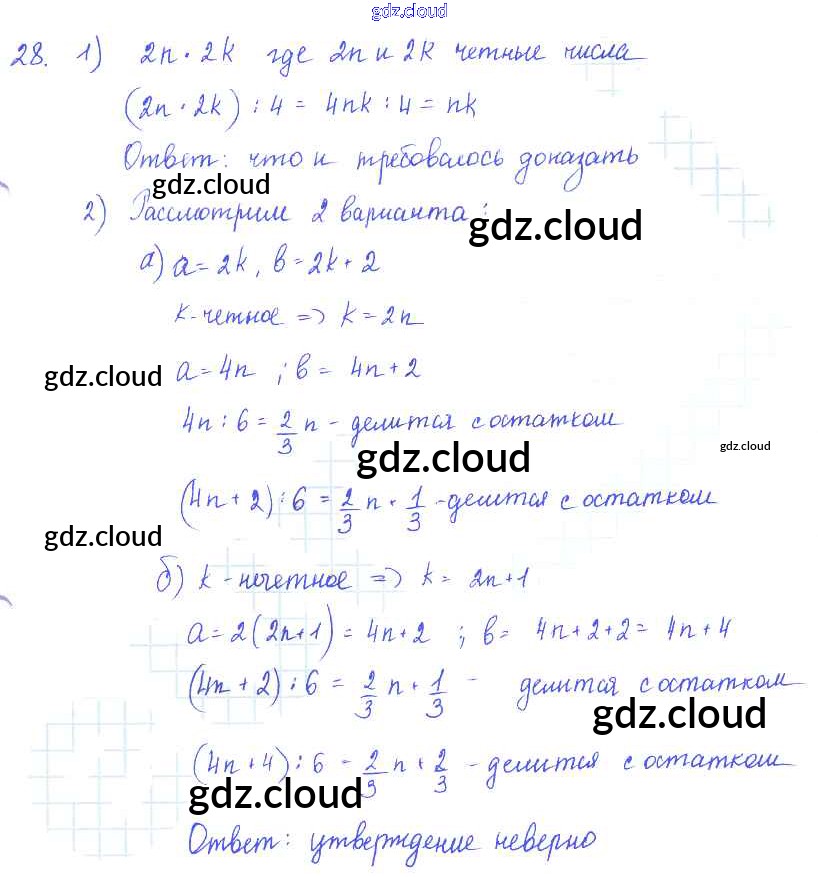 gdz.cloud
28. 1) 2n · 2k где 2n и 2k четные числа
(2n · 2k) : 4 = 4nk : 4 = nk
Ответ: что и требовалось доказать
gdz.cloud
2) Рассмотрим 2 варианта:
gdz.cloud
а) a = 2k, b = 2k + 2
k - четное => k = 2n
gdz.cloud a = 4n ; b = 4n + 2
4n : 6 = 2/3 n - делится с остатком
gdz.cloud
gdz.cloud
(4n + 2) : 6 = 2/3 n · 1/3 - делится с остатком
gdz.cloud
б) k - нечетное => k = 2n + 1
a = 2(2n+1) = 4n + 2 ; b = 4n + 2 + 2 = 4n + 4
(4n + 2) : 6 = 2/3 n · 1/3 - делится с остатком
gdz.cloud
(4n + 4) : 6 - 2/3 n + 2/3 - делится с остатком
gdz.cloud
Ответ: утверждение неверно